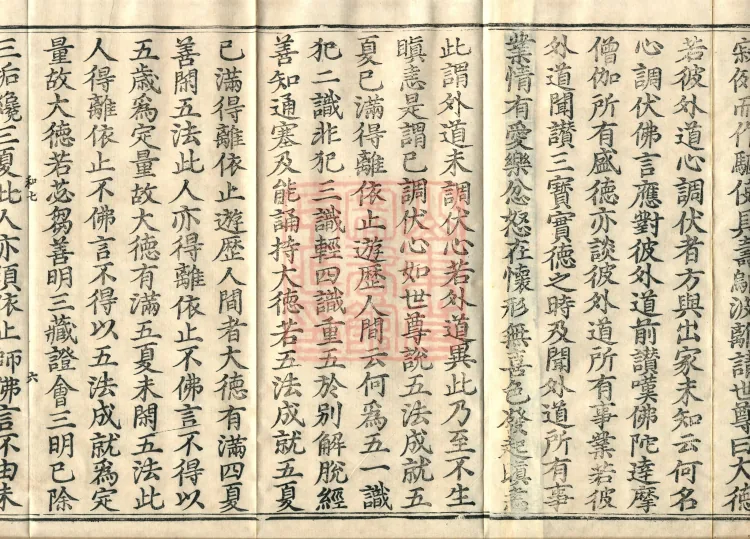 而作驅使具壽鄔波離請世尊曰大德
若彼外道心調伏者方與出家未知云何名
心調伏佛言應對彼外道前讃嘆佛陀達摩
僧伽所有盛德亦談彼外道所有事業若彼
外道聞讃三寶實德之時及聞外道所有事
業情有愛樂忿怒在懷形無喜色發起瞋恚
此謂外道未調伏心若外道異此乃至不生
瞋恚是謂已調伏心如世尊說五法成就五
夏已滿得離依止遊歷人間云何爲五一識
犯二識非犯三識輕四識重五於別解脫經
善知通塞及能誦持大德若五法成就五夏
已滿得離依止遊歷人間者大德有滿四夏
善閑五法此人亦得離依止不佛言不得以
五歲爲定量故大德有滿五夏未閑五法此
人得離依止不佛言不得以五法成就爲定
量故大德若苾芻善明三藏證會三明已除
和七 六
三垢纔三夏此人亦須依止師佛言不由未